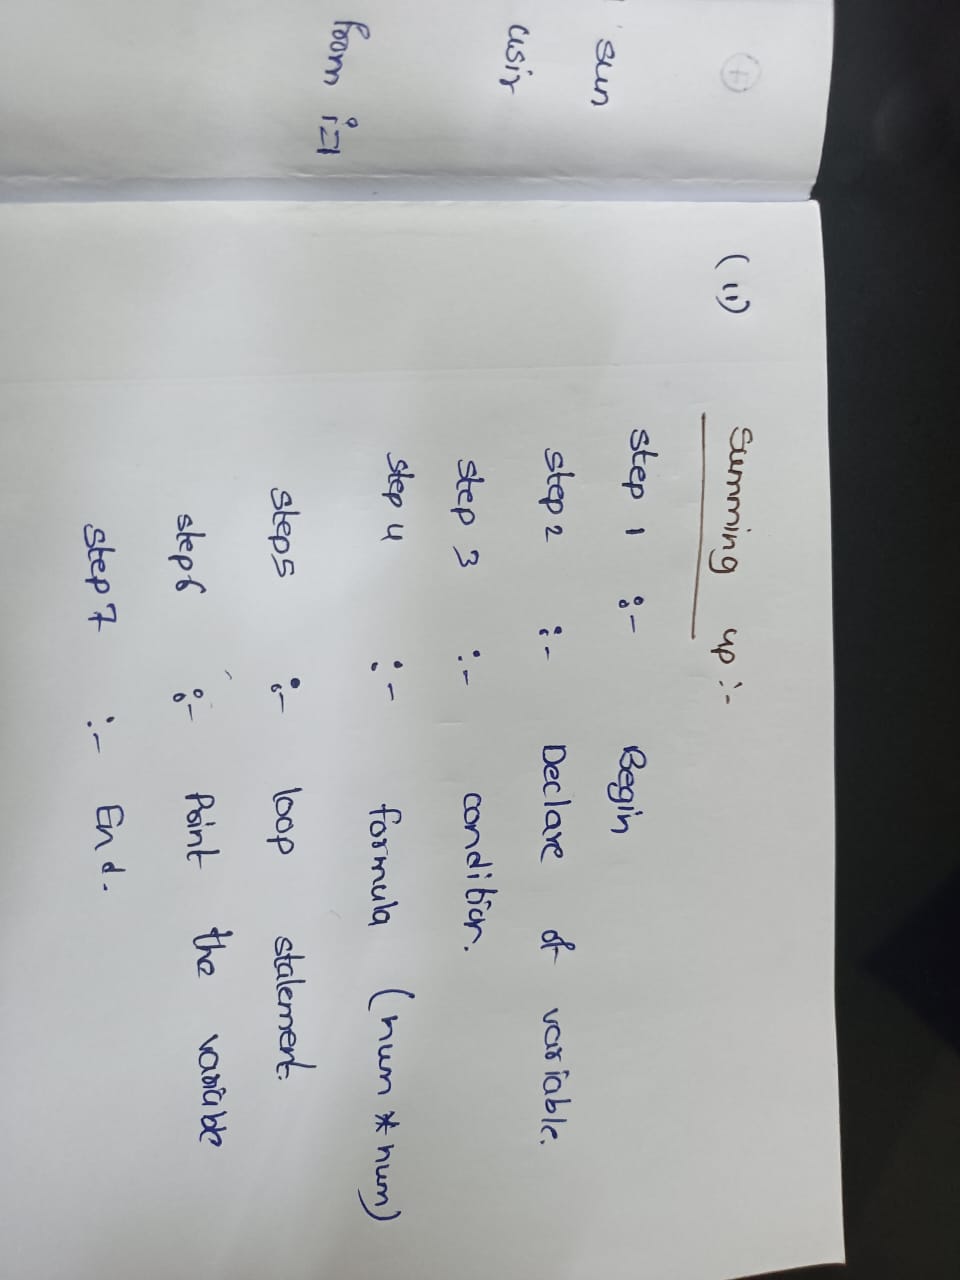 sun
usir
from i=1
(11) Summing up :-
step 1 :- Begin
step 2 :- Declare of variable.
step 3 :- condition.
step 4 :- formula (num * num)
step 5 :- loop statement.
step 6 :- Print the variable
step 7 :- End.